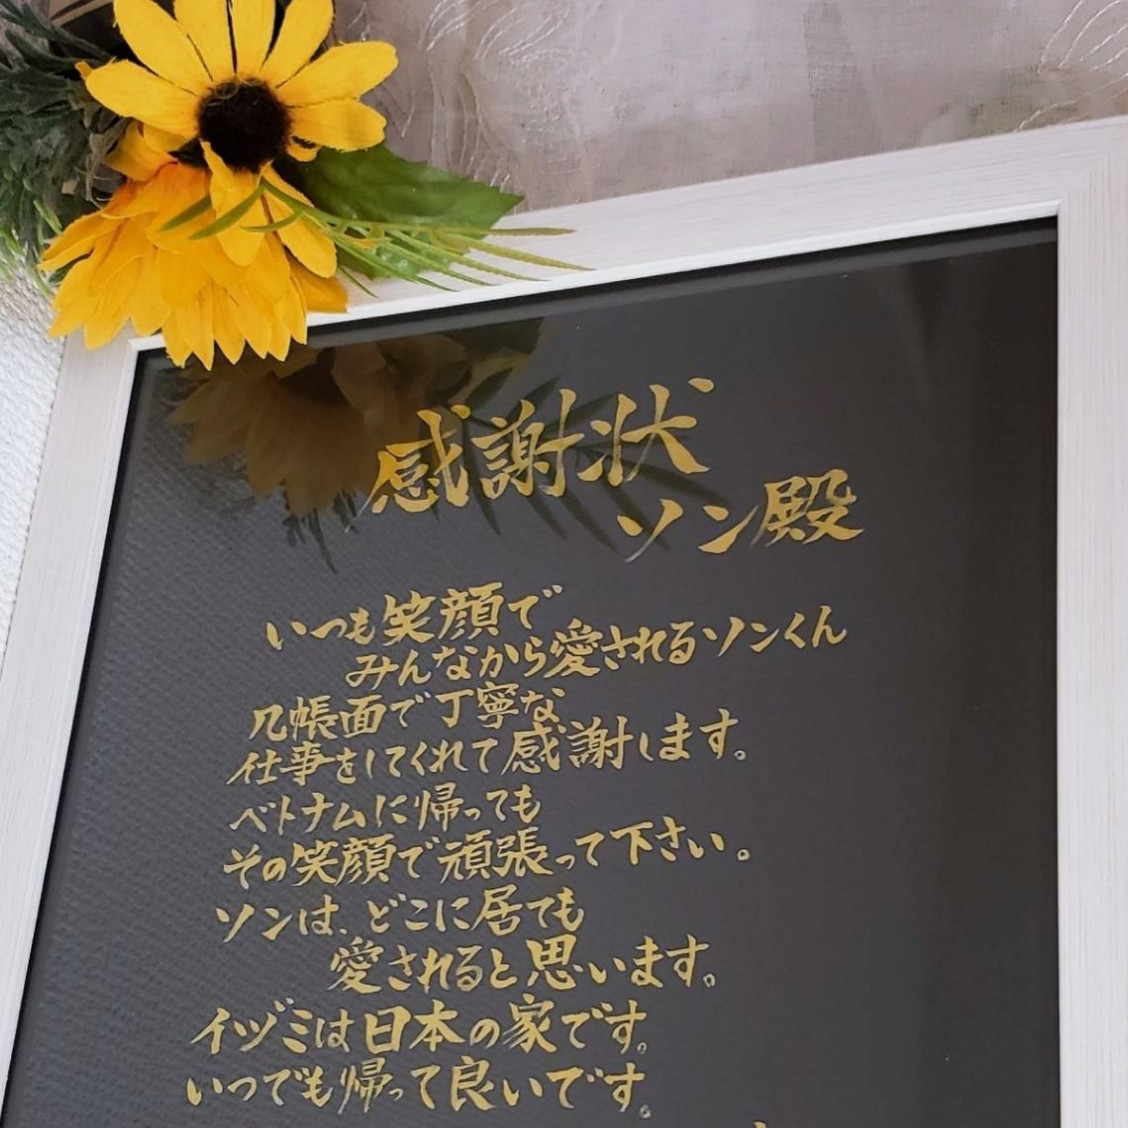 感謝状
ソン殿
いつも笑顔で
みんなから愛されるソンくん
几帳面で丁寧な
仕事をしてくれて感謝します。
ベトナムに帰っても
その笑顔で頑張って下さい。
ソンは、どこに居ても
愛されると思います。
イヅミは日本の家です。
いつでも帰って良いです。